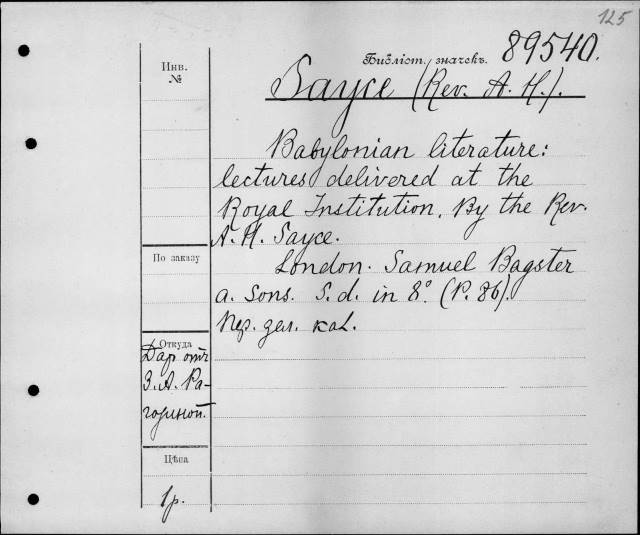 125
Библіот. значекъ. 89540.
Инв.
№
Sayce (Rev. A. H.).
Babylonian literature:
lectures delivered at the
Royal Institution. By the Rev.
A. H. Sayce.
По заказу
London. Samuel Bagster
a. Sons. S. d. in 8°. (P. 86).
Пер. зел. кал.
Откуда
Даръ отъ
З. А. Ра-
гозиной.
Цѣна
1 р.